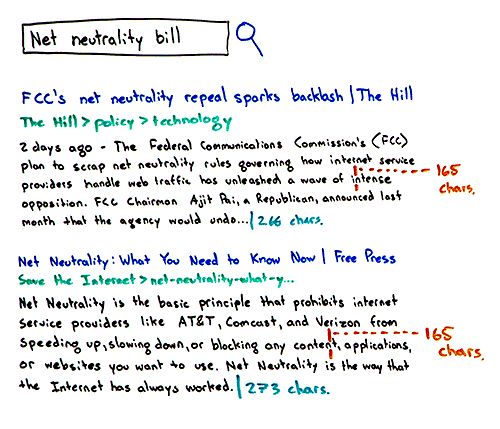 Net neutrality bill
FCC's net neutrality repeal sparks backlash | The Hill
The Hill > policy > technology
2 days ago - The Federal Communications Commission's (FCC)
plan to scrap net neutrality rules governing how internet service
providers handle web traffic has unleashed a wave of intense
opposition. FCC Chairman Ajit Pai, a Republican, announced last
month that the agency would undo... | 266 chars.
165
chars.
Net Neutrality: What You Need to Know Now | Free Press
Save the Internet > net-neutrality-what-y...
Net Neutrality is the basic principle that prohibits internet
service providers like AT&T, Comcast, and Verizon from
speeding up, slowing down, or blocking any content, applications,
or websites you want to use. Net Neutrality is the way that
the Internet has always worked. | 273 chars.
165
chars.